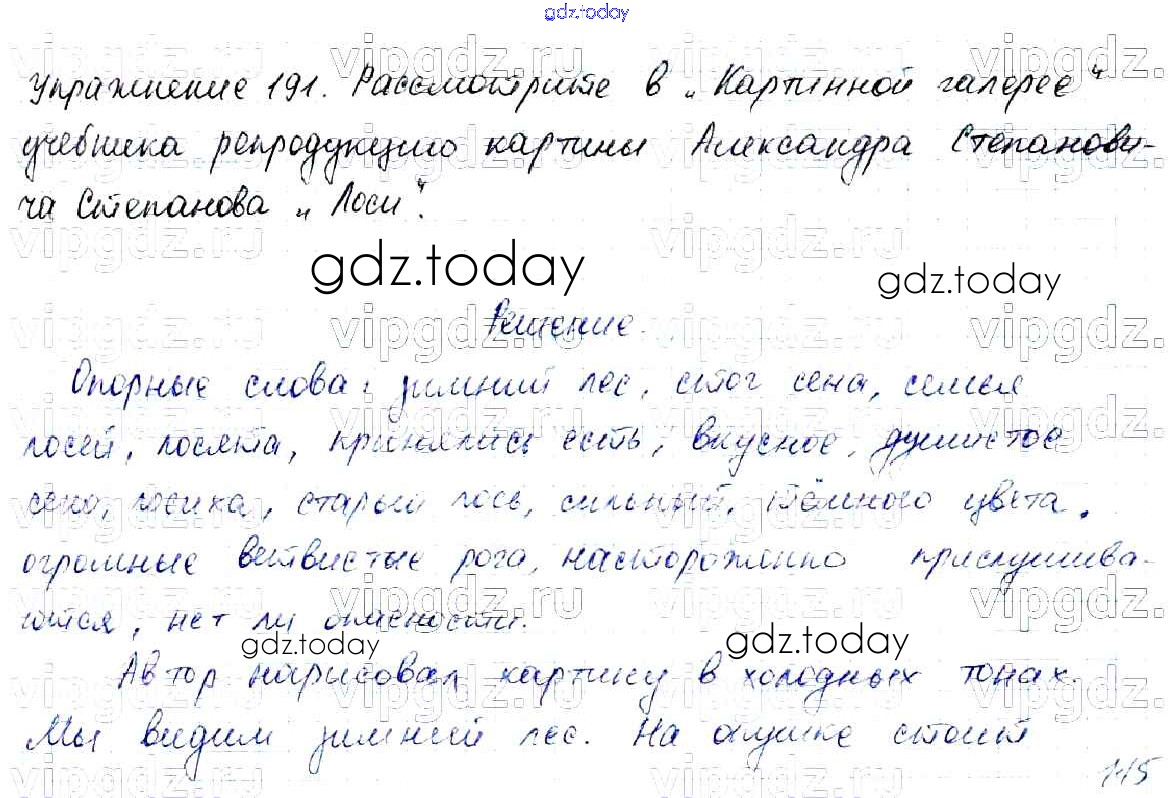 gdz.today
Упражнение 191. Рассмотрите в „Картинной галерее“
учебника репродукцию картины Александра Степанови-
ча Степанова „Лоси“.
gdz.today
gdz.today
Решение.
Опорные слова: зимний лес, стог сена, семья
лосей, лосята, принялись есть, вкусное, душистое
сено, лосиха, старый лось, сильный, тёмного цвета,
огромные ветвистые рога, настороженно прислушива-
ются, нет ли опасности.
gdz.today
gdz.today
Автор нарисовал картину в холодных тонах.
Мы видим зимний лес. На опушке стоит
115
vipgdz.ru vipgdz.ru vipgdz.ru vipgdz.